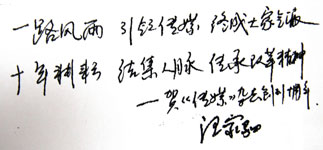 一路风雨 引领传媒 铸成大家气派
十年耕耘 结集人脉 传承改革精神
—贺《传媒》杂志创刊十周年